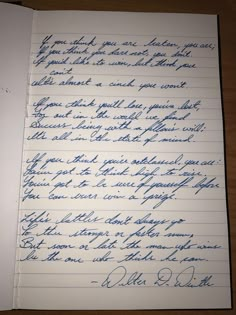 If you think you are beaten, you are;
If you think you dare not, you don't.
If you'd like to win, but think you
can't
It's almost a cinch you won't.
If you think you'll lose, you've lost,
For out in the world we find
Success being with a fellow's will;
It's all in the state of mind.
If you think you're outclassed, you are:
You've got to think high to rise.
You've got to be sure of yourself before
You can ever win a prize.
Life's battles don't always go
To the stronger or faster man,
But soon or late the man who wins
Is the one who thinks he can.
- Walter D. Wintle